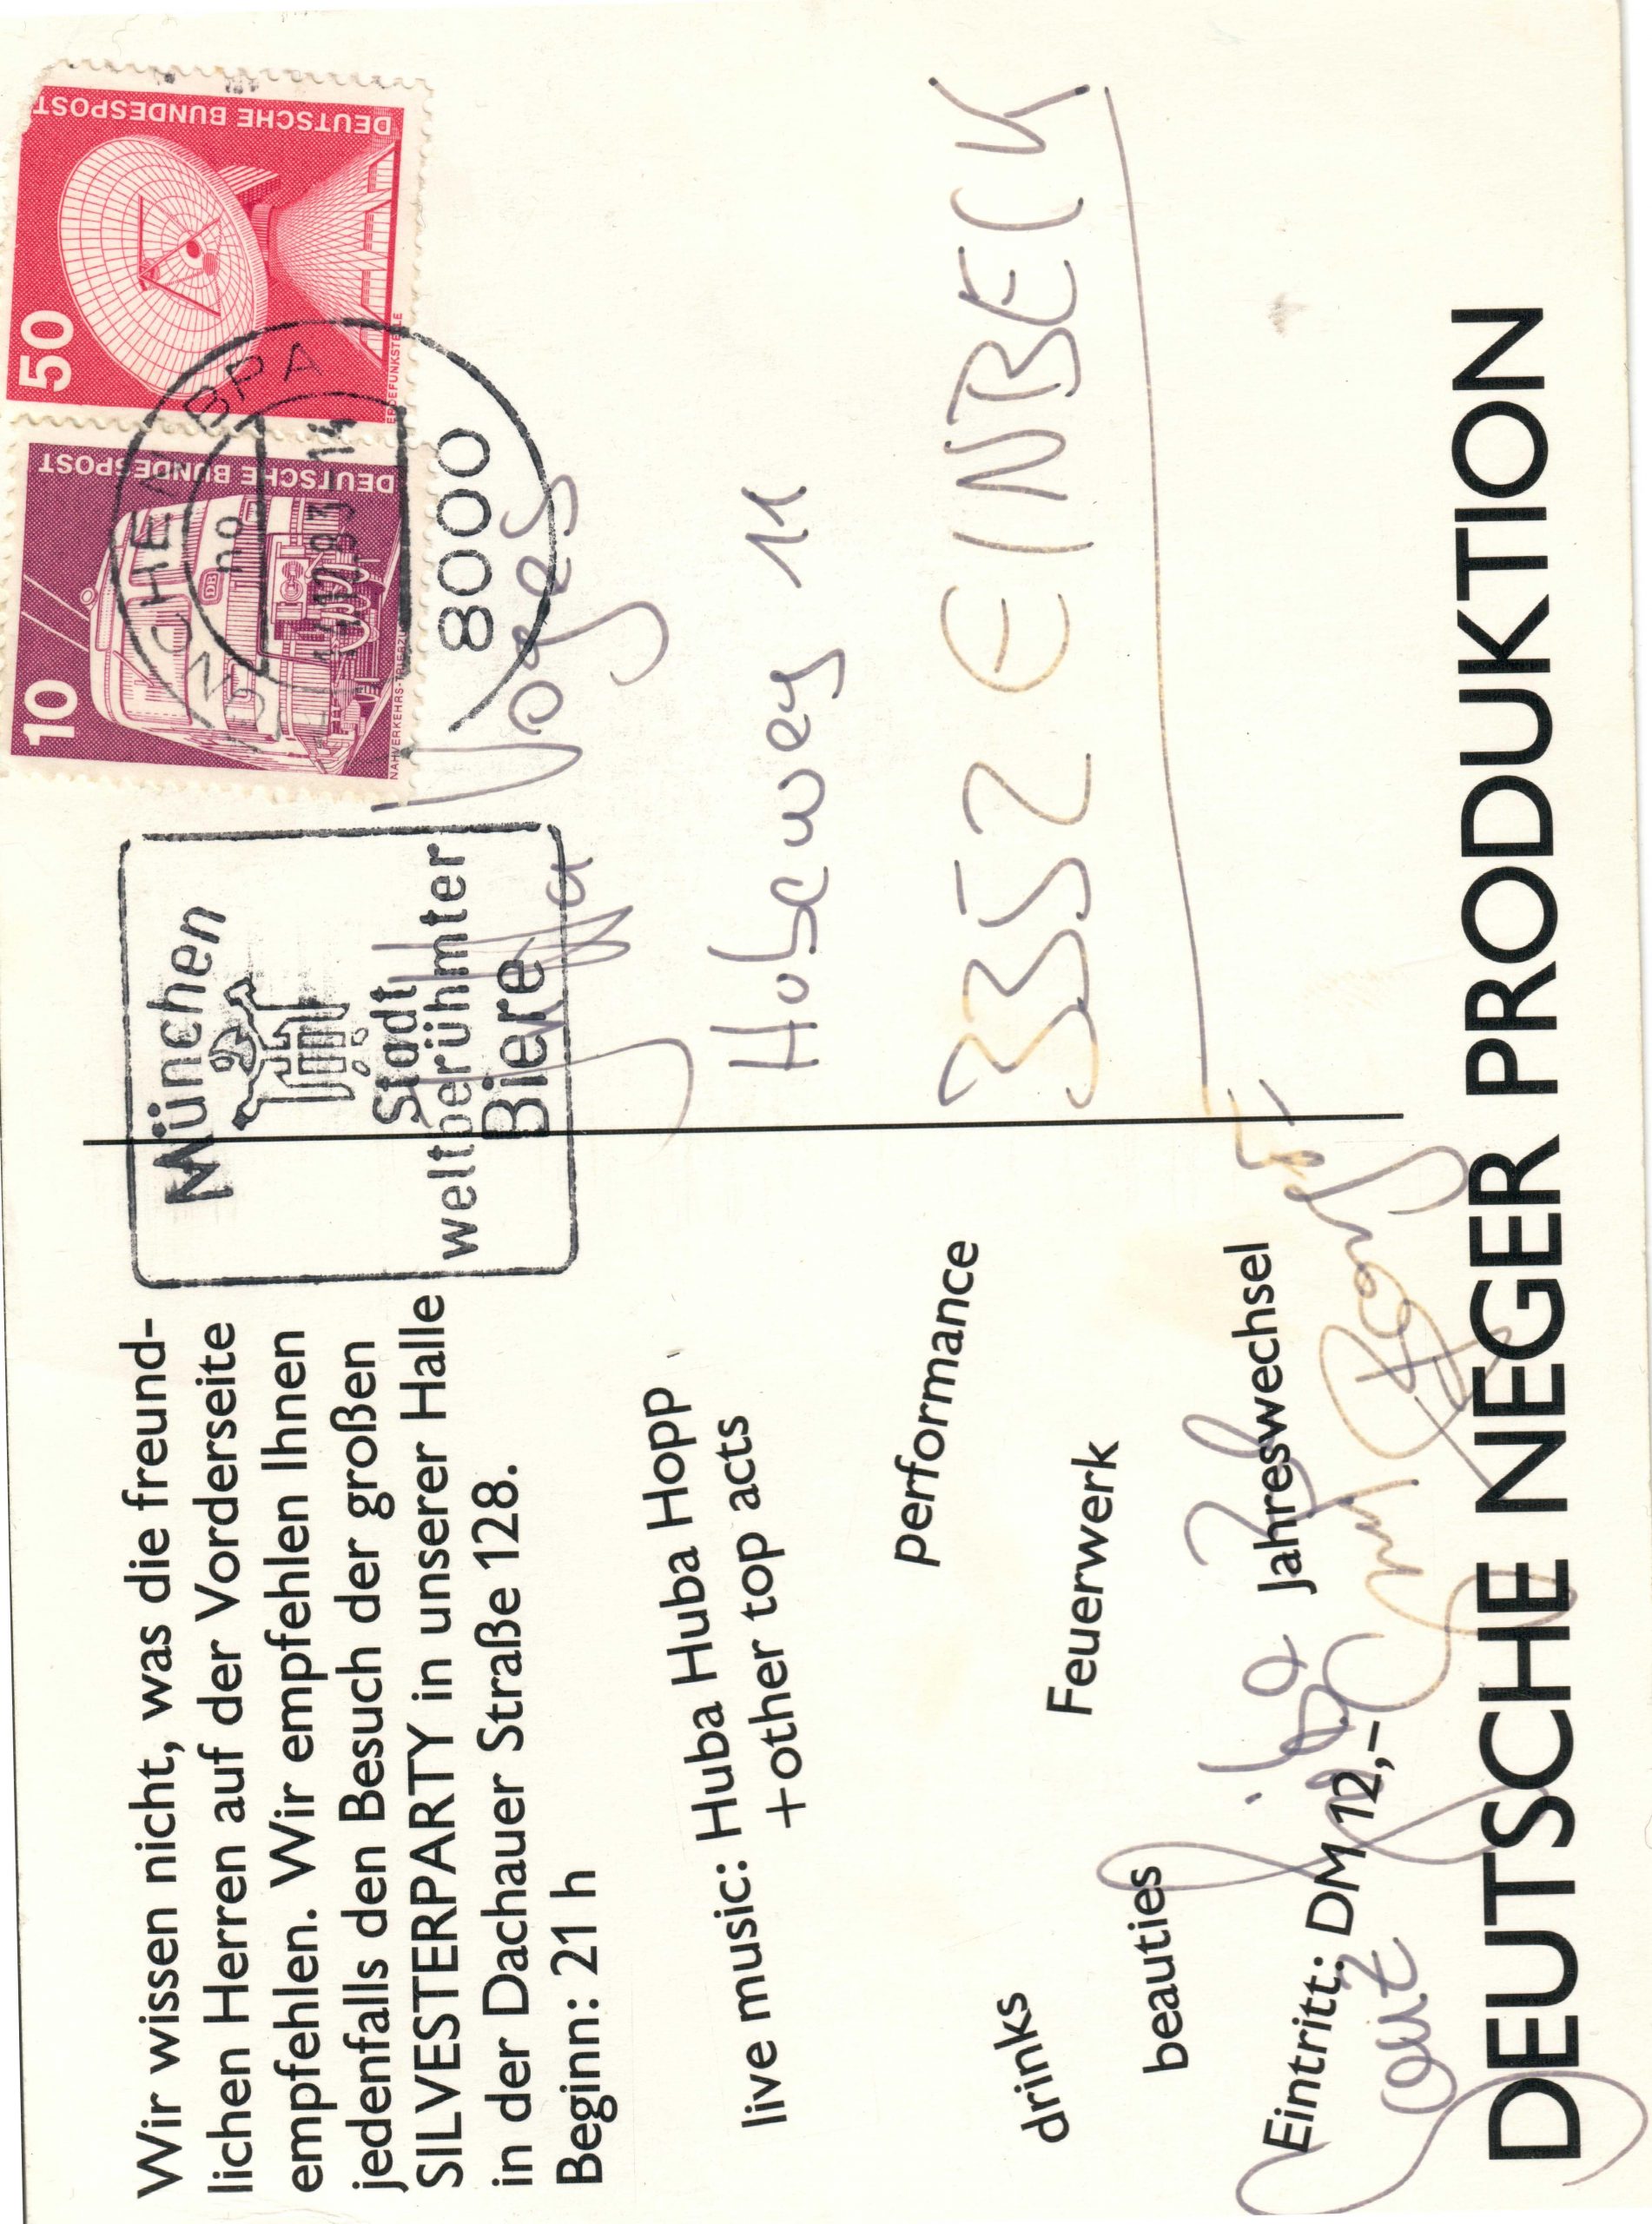 Wir wissen nicht, was die freund-
lichen Herren auf der Vorderseite
empfehlen. Wir empfehlen Ihnen
jedenfalls den Besuch der großen
SILVESTERPARTY in unserer Halle
in der Dachauer Straße 128.
Beginn: 21 h
live music: Huba Huba Hopp
+other top acts
performance
drinks
Feuerwerk
beauties
Jahreswechsel
Eintritt: DM 12,–
DEUTSCHE NEGER PRODUKTION
München
Stadt
weltberühmter
Biere
10
DEUTSCHE BUNDESPOST
50
DEUTSCHE BUNDESPOST
ERDEFUNKSTELLE
MÜNCHEN BPA
8000
Voges
Hubeweg 11
3352 EINBECK